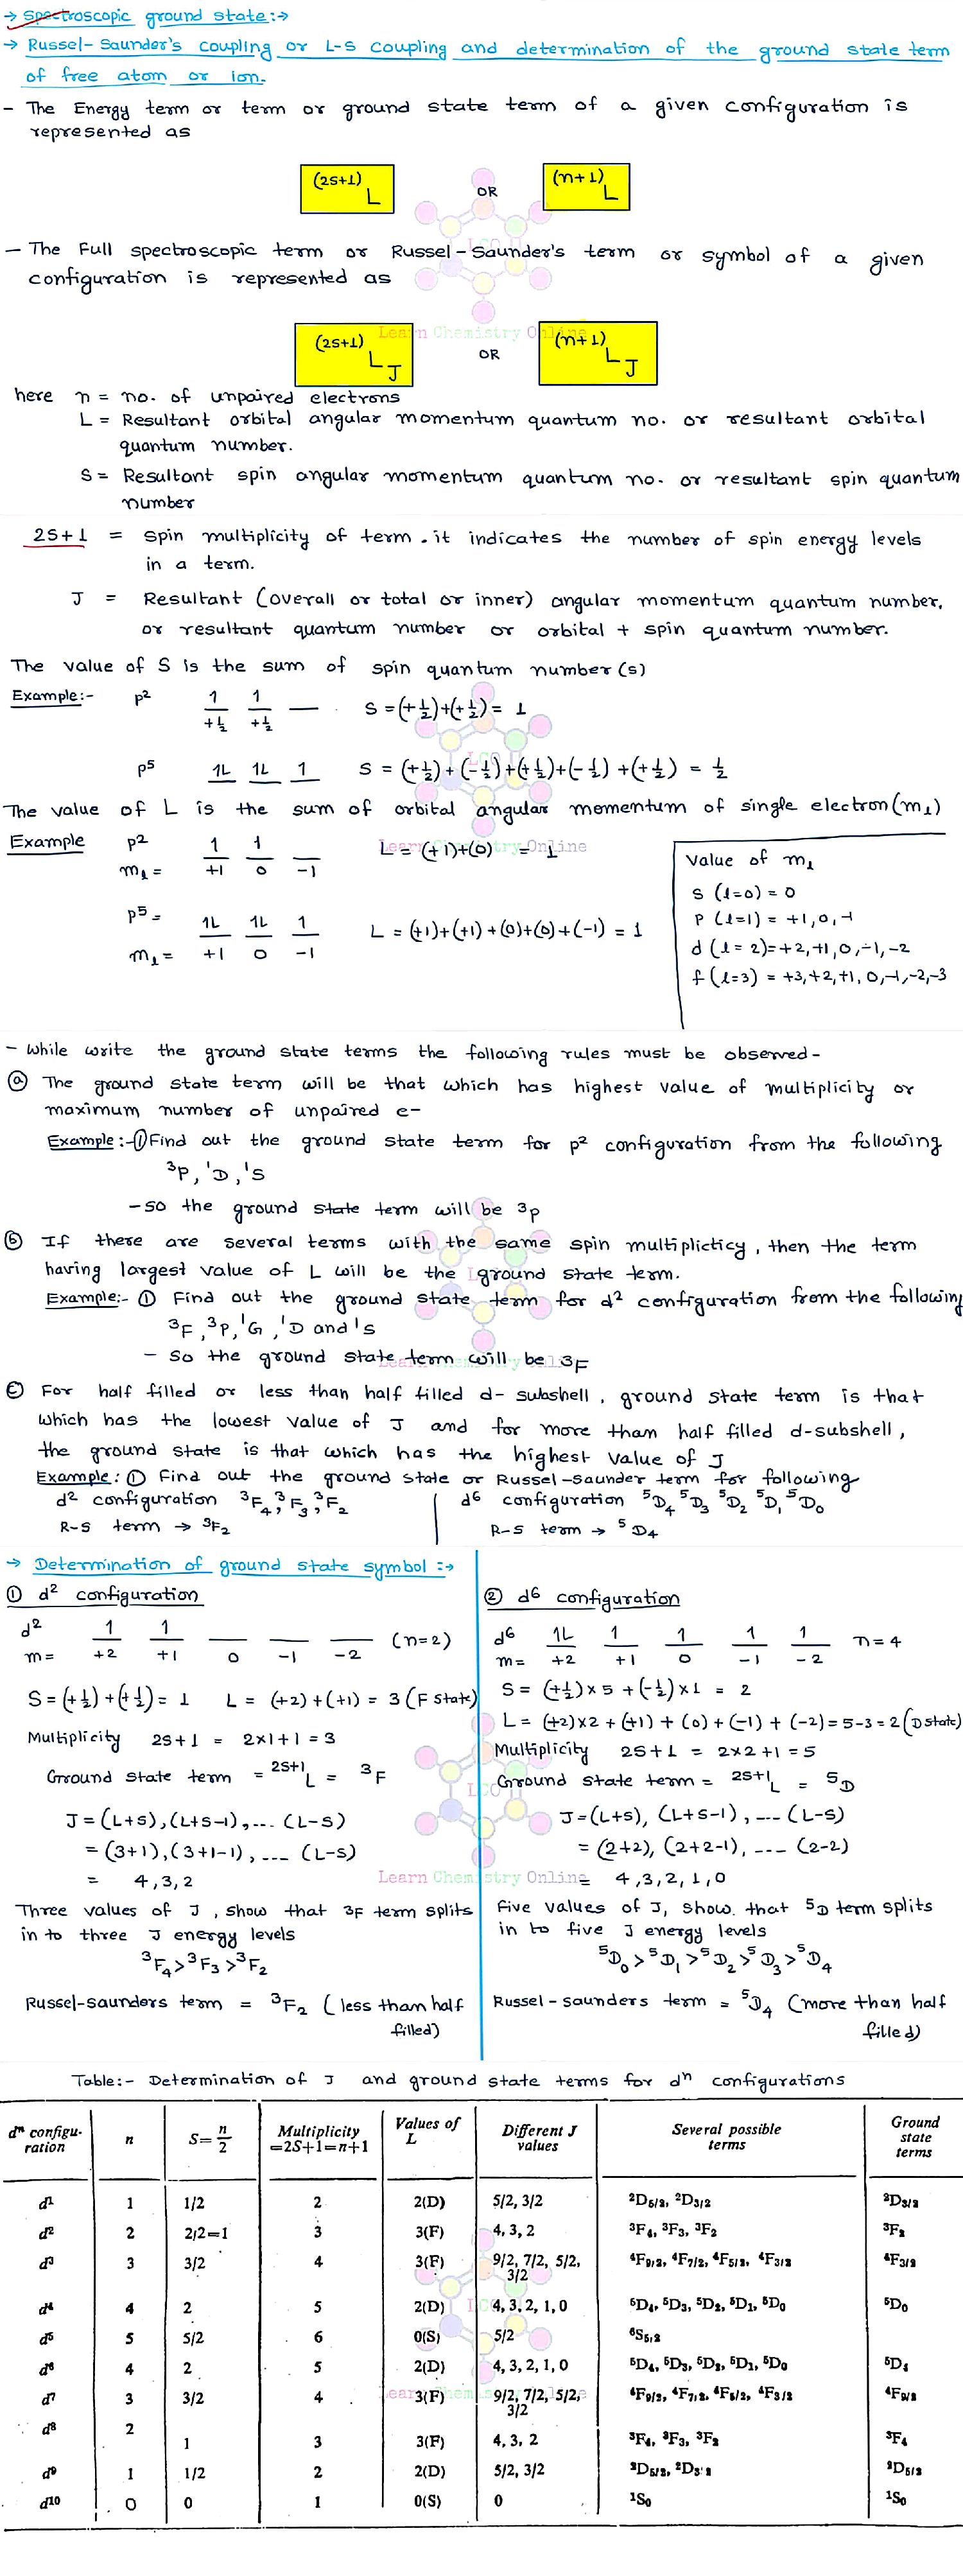 → Spectroscopic ground state:→
→ Russel-Saunder's coupling or L-S coupling and determination of the ground state term
of free atom or ion.
- The Energy term or term or ground state term of a given configuration is
represented as
(2S+1)L OR (n+1)L
- The Full spectroscopic term or Russel-Saunder's term or symbol of a given
configuration is represented as
Learn Chemistry Online
(2S+1)L_J OR (n+1)L_J
here n = no. of unpaired electrons
L = Resultant orbital angular momentum quantum no. or resultant orbital
quantum number.
S = Resultant spin angular momentum quantum no. or resultant spin quantum
number
2S+1 = spin multiplicity of term. it indicates the number of spin energy levels
in a term.
J = Resultant (overall or total or inner) angular momentum quantum number.
or resultant quantum number or orbital + spin quantum number.
The value of S is the sum of spin quantum number(s)
Example:- p² 1 1 __ S = (+½)+(+½) = 1
+½ +½
p⁵ 1L 1L 1 S = (+½)+(-½)+(+½)+(-½)+(+½) = ½
The value of L is the sum of orbital angular momentum of single electron(m₁)
Example p² 1 1 __ L = (+1)+(0) = 1
Learn Chemistry Online
mₗ = +1 0 -1
p⁵ = 1L 1L 1 L = (+1)+(+1)+(0)+(0)+(-1) = 1
mₗ = +1 0 -1
Value of mₗ
s (l=0) = 0
p (l=1) = +1,0,-1
d (l=2)=+2,+1,0,-1,-2
f (l=3) = +3,+2,+1,0,-1,-2,-3
- While write the ground state terms the following rules must be observed-
ⓐ The ground state term will be that which has highest value of multiplicity or
maximum number of unpaired e-
Example:-① Find out the ground state term for p² configuration from the following
³P, ¹D, ¹S
-so the ground state term will be ³P
ⓑ If there are several terms with the same spin multiplicticy, then the term
having largest value of L will be the ground state term.
Example:- ① Find out the ground state term for d² configuration from the following
³F, ³P, ¹G, ¹D and ¹S
- So the ground state term will be ³F
ⓒ For half filled or less than half filled d-subshell, ground state term is that
which has the lowest value of J and for more than half filled d-subshell,
the ground state is that which has the highest value of J
Example: ① Find out the ground state or Russel-saunder term for following
d² configuration ³F₄, ³F₃, ³F₂
R-S term → ³F₂
d⁶ configuration ⁵D₄ ⁵D₃ ⁵D₂ ⁵D₁ ⁵D₀
R-S term → ⁵D₄
→ Determination of ground state symbol :→
① d² configuration
d² 1 1 __ __ __ (n=2)
m= +2 +1 0 -1 -2
S = (+½)+(+½) = 1 L = (+2)+(+1) = 3 (F state)
Multiplicity 2S+1 = 2x1+1 = 3
Ground state term = 2S+1L = ³F
J = (L+S), (L+S-1), ... (L-S)
= (3+1), (3+1-1), --- (L-S)
= 4,3,2
Three values of J, show that ³F term splits
in to three J energy levels
³F₄ > ³F₃ > ³F₂
Russel-saunders term = ³F₂ (less than half
filled)
② d⁶ configuration
d⁶ 1L 1 1 1 1 n=4
m= +2 +1 0 -1 -2
S = (+½)x5 + (-½)x1 = 2
L = (+2)x2 + (+1) + (0) + (-1) + (-2) = 5-3 = 2 (D state)
Multiplicity 2S+1 = 2x2+1 = 5
Ground state term = 2S+1L = ⁵D
J = (L+S), (L+S-1), --- (L-S)
= (2+2), (2+2-1), --- (2-2)
= 4,3,2,1,0
Learn Chemistry Online
Five values of J, show that ⁵D term splits
in to five J energy levels
⁵D₀ > ⁵D₁ > ⁵D₂ > ⁵D₃ > ⁵D₄
Russel-saunders term = ⁵D₄ (more than half
filled)
Table:- Determination of J and ground state terms for dⁿ configurations
dⁿ configu-ration n S=n/2 Multiplicity =2S+1=n+1 Values of L Different J values Several possible terms Ground state terms
d¹ 1 1/2 2 2(D) 5/2, 3/2 ²D5/2, ²D3/2 ²D3/2
d² 2 2/2=1 3 3(F) 4, 3, 2 ³F₄, ³F₃, ³F₂ ³F₂
d³ 3 3/2 4 3(F) 9/2, 7/2, 5/2, 3/2 ⁴F9/2, ⁴F7/2, ⁴F5/2, ⁴F3/2 ⁴F3/2
d⁴ 4 2 5 2(D) 4, 3, 2, 1, 0 ⁵D₄, ⁵D₃, ⁵D₂, ⁵D₁, ⁵D₀ ⁵D₀
d⁵ 5 5/2 6 0(S) 5/2 ⁶S5/2
d⁶ 4 2 5 2(D) 4, 3, 2, 1, 0 ⁵D₄, ⁵D₃, ⁵D₂, ⁵D₁, ⁵D₀ ⁵D₄
d⁷ 3 3/2 4 3(F) 9/2, 7/2, 5/2, 3/2 ⁴F9/2, ⁴F7/2, ⁴F5/2, ⁴F3/2 ⁴F9/2
d⁸ 2 1 3 3(F) 4, 3, 2 ³F₄, ³F₃, ³F₂ ³F₄
d⁹ 1 1/2 2 2(D) 5/2, 3/2 ²D5/2, ²D3/2 ²D5/2
d¹⁰ 0 0 1 0(S) 0 ¹S₀ ¹S₀